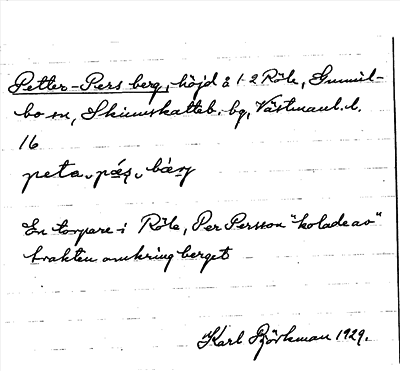 Petter-Pers berg, höjd å 1-2 Röle, Gunnil-
bo sn, Skinnskatteb. bg, Västmanl. l.
16
peta-pæ̣ș-bærj
En torpare i Röle, Per Persson "kolade av"
trakten omkring berget
Karl Björkman 1929.